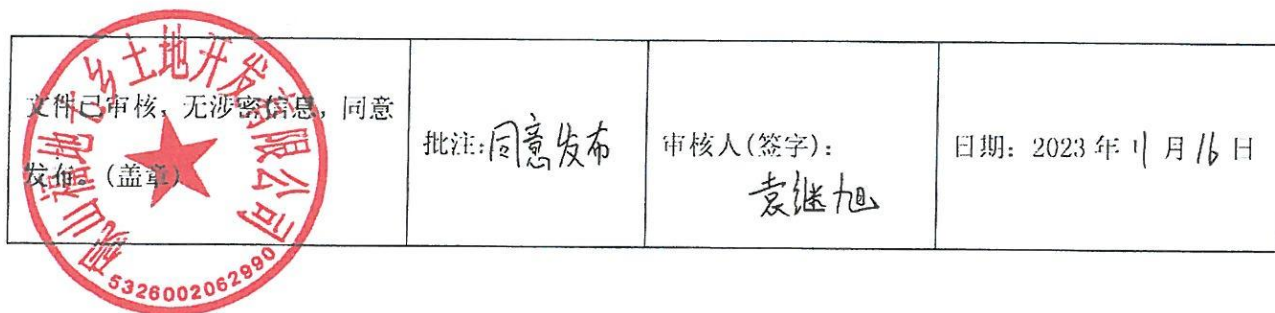 文件已审核，无涉密信息，同意
发布。(盖章)
批注:同意发布
审核人(签字):
袁继旭
日期: 2023 年 11 月 16 日
砚山福地七乡土地开发有限公司
5326002062990